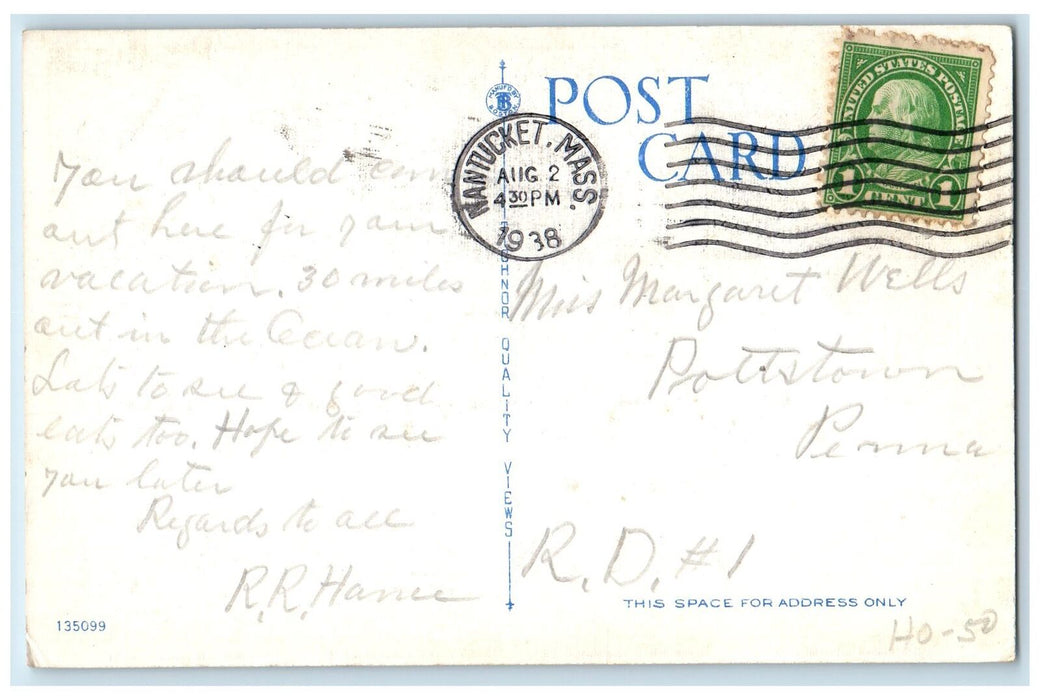 You should come
out here for your
vacation. 30 miles
out in the Ocean.
Lots to see & good
eats too. Hope to see
you later
Regards to all
R.R.
135099
MANUF'D BY
BOSTON
QUALITY VIEWS
POST
CARD
NANTUCKET, MASS.
AUG 2
4 30 PM
1938
UNITED STATES POSTAGE
1 CENT 1
Miss Margaret Wells
Pottstown
Penna
R.D. #1
THIS SPACE FOR ADDRESS ONLY
HO-50